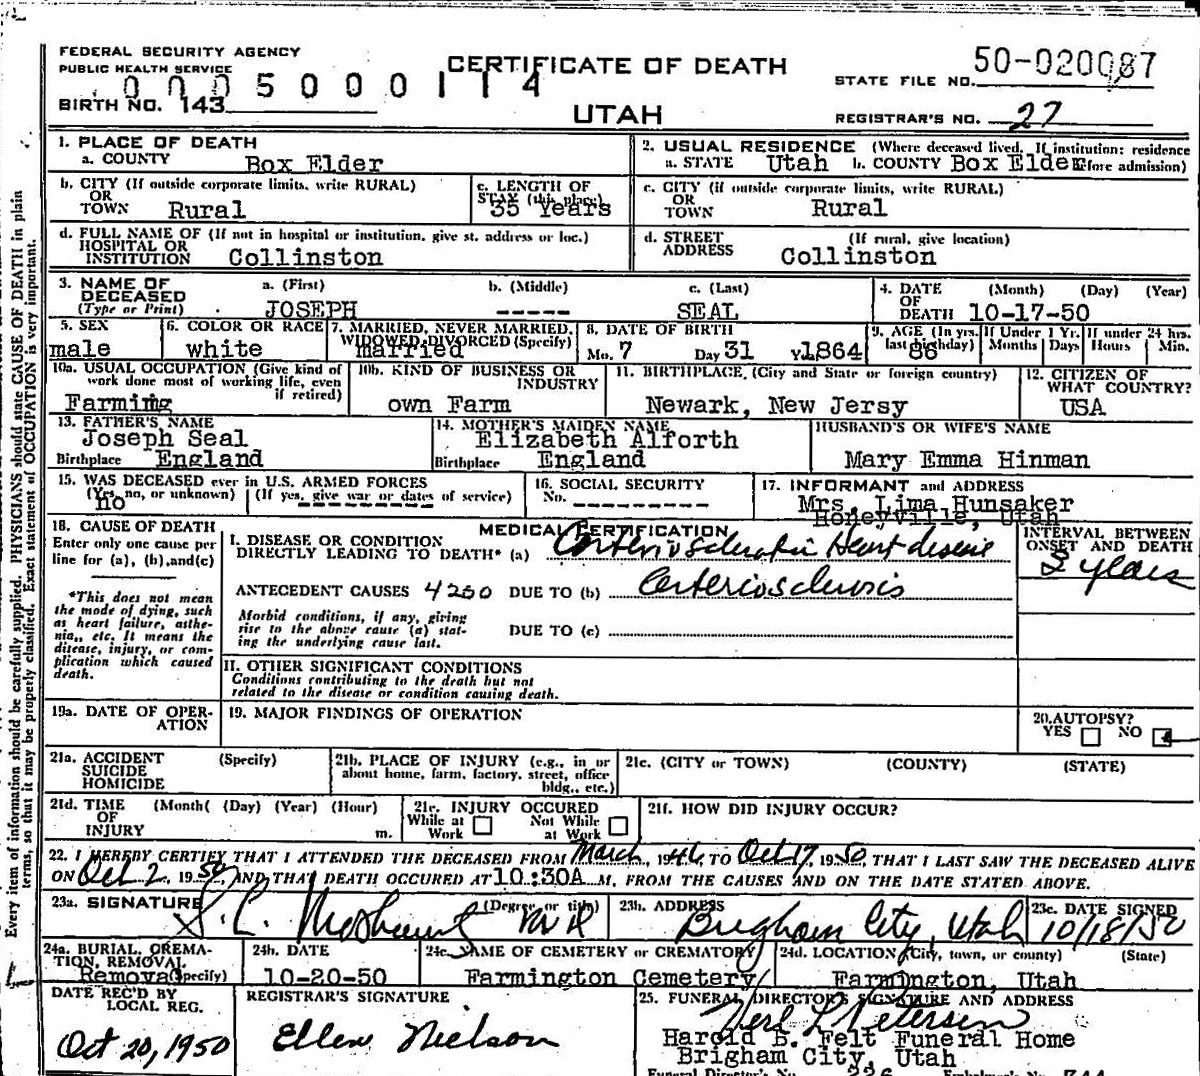 FEDERAL SECURITY AGENCY
PUBLIC HEALTH SERVICE
CERTIFICATE OF DEATH
STATE FILE NO. 50-020087
0005000114
BIRTH NO. 143
UTAH
REGISTRAR'S NO. 27
1. PLACE OF DEATH
a. COUNTY Box Elder
2. USUAL RESIDENCE (Where deceased lived. If institution: residence
a. STATE Utah b. COUNTY Box Elder fore admission)
b. CITY (If outside corporate limits, write RURAL)
OR
TOWN Rural
c. LENGTH OF
STAY (this place)
35 Years
c. CITY (if outside corporate limits, write RURAL)
OR
TOWN Rural
d. FULL NAME OF (If not in hospital or institution, give st. address or loc.)
HOSPITAL OR
INSTITUTION Collinston
d. STREET (If rural, give location)
ADDRESS Collinston
3. NAME OF a. (First) b. (Middle) c. (Last)
DECEASED
(Type or Print) JOSEPH ----- SEAL
4. DATE (Month) (Day) (Year)
OF
DEATH 10-17-50
5. SEX
male
6. COLOR OR RACE
white
7. MARRIED, NEVER MARRIED,
WIDOWED, DIVORCED (Specify)
married
8. DATE OF BIRTH
Mo. 7 Day 31 Yr. 1864
9. AGE (In yrs.
last birthday)
86
If Under 1 Yr.
Months Days
If under 24 hrs.
Hours Min.
10a. USUAL OCCUPATION (Give kind of
work done most of working life, even
if retired)
Farming
10b. KIND OF BUSINESS OR
INDUSTRY
own Farm
11. BIRTHPLACE, (City and State or foreign country)
Newark, New Jersy
12. CITIZEN OF
WHAT COUNTRY?
USA
13. FATHER'S NAME
Joseph Seal
Birthplace England
14. MOTHER'S MAIDEN NAME
Elizabeth Alforth
Birthplace England
HUSBAND'S OR WIFE'S NAME
Mary Emma Hinman
15. WAS DECEASED ever in U.S. ARMED FORCES
(Yes, no, or unknown) (If yes, give war or dates of service)
no ---------
16. SOCIAL SECURITY
No. ---------
17. INFORMANT and ADDRESS
Mrs. Lima Hunsaker
Honeyville, Utah
18. CAUSE OF DEATH
Enter only one cause per
line for (a), (b), and(c)
*This does not mean
the mode of dying, such
as heart failure, asthe-
nia,, etc. It means the
disease, injury, or com-
plication which caused
death.
MEDICAL CERTIFICATION
I. DISEASE OR CONDITION
DIRECTLY LEADING TO DEATH* (a) Arteriosclerotic Heart disease
ANTECEDENT CAUSES 4200 DUE TO (b) Arteriosclerosis
Morbid conditions, if any, giving
rise to the above cause (a) stat-
ing the underlying cause last.
DUE TO (c)
INTERVAL BETWEEN
ONSET AND DEATH
years
II. OTHER SIGNIFICANT CONDITIONS
Conditions contributing to the death but not
related to the disease or condition causing death.
19a. DATE OF OPER-
ATION
19. MAJOR FINDINGS OF OPERATION
20. AUTOPSY?
YES NO
21a. ACCIDENT (Specify)
SUICIDE
HOMICIDE
21b. PLACE OF INJURY (e.g., in or
about home, farm, factory, street, office
bldg., etc.)
21c. (CITY or TOWN) (COUNTY) (STATE)
21d. TIME (Month( (Day) (Year) (Hour)
OF
INJURY m.
21e. INJURY OCCURED
While at Not While
Work at Work
21f. HOW DID INJURY OCCUR?
22. I HEREBY CERTIFY THAT I ATTENDED THE DECEASED FROM March, 1946 TO Oct 17, 1950 THAT I LAST SAW THE DECEASED ALIVE
ON Oct 2, 1950, AND THAT DEATH OCCURED AT 10:30A M, FROM THE CAUSES AND ON THE DATE STATED ABOVE.
23a. SIGNATURE (Degree or title)
23b. ADDRESS
Brigham City, Utah
23c. DATE SIGNED
10/18/50
24a. BURIAL, CREMA-
TION, REMOVAL
(Specify)
Removal
24b. DATE
10-20-50
24c. NAME OF CEMETERY or CREMATORY
Farmington Cemetery
24d. LOCATION (City, town, or county) (State)
Farmington, Utah
DATE REC'D BY
LOCAL REG.
Oct 20, 1950
REGISTRAR'S SIGNATURE
Ellen Nielson
25. FUNERAL DIRECTOR'S SIGNATURE AND ADDRESS
Verl L Petersen
Harold B. Felt Funeral Home
Brigham City, Utah
Every item of information should be carefully supplied. PHYSICIANS should state CAUSE OF DEATH in plain
terms, so that it may be properly classified. Exact statement of OCCUPATION is very important.